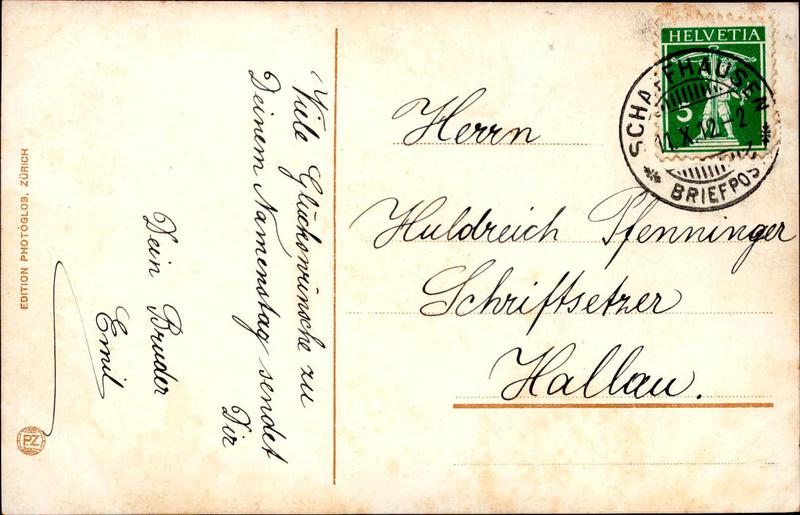 Viele Glückwünsche zu
Deinem Namenstag sendet
Dir
Dein Bruder
Emil
EDITION PHOTOGLOB, ZÜRICH
PZ
HELVETIA
5
SCHAFFHAUSEN
11.X.12.-2
BRIEFPOST
Herrn
Huldreich Pfenninger
Schriftsetzer
Hallau.